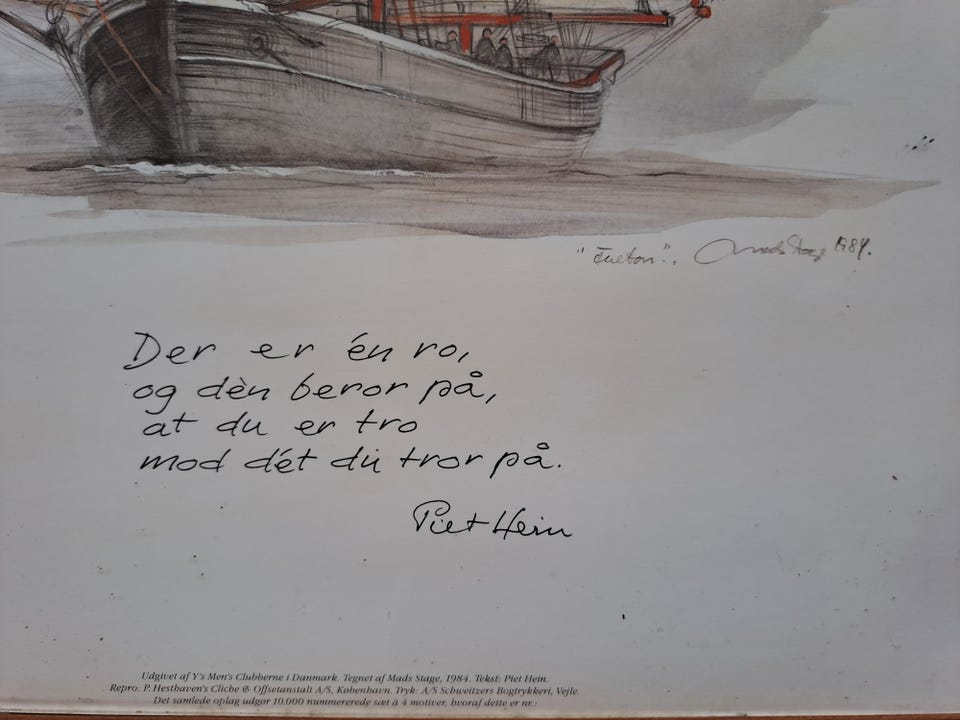 Mads Stage 1984.
Der er én ro,
og dèn beror på,
at du er tro
mod dét du tror på.
Piet Hein
Udgivet af Y's Men's Clubberne i Danmark. Tegnet af Mads Stage, 1984. Tekst: Piet Hein.
Repro: P. Hesthaven's Cliche & Offsetanstalt A/S, København. Tryk: A/S Schweitzers Bogtrykkeri, Vejle.
Det samlede oplag udgør 10.000 nummererede sæt à 4 motiver, hvoraf dette er nr.: